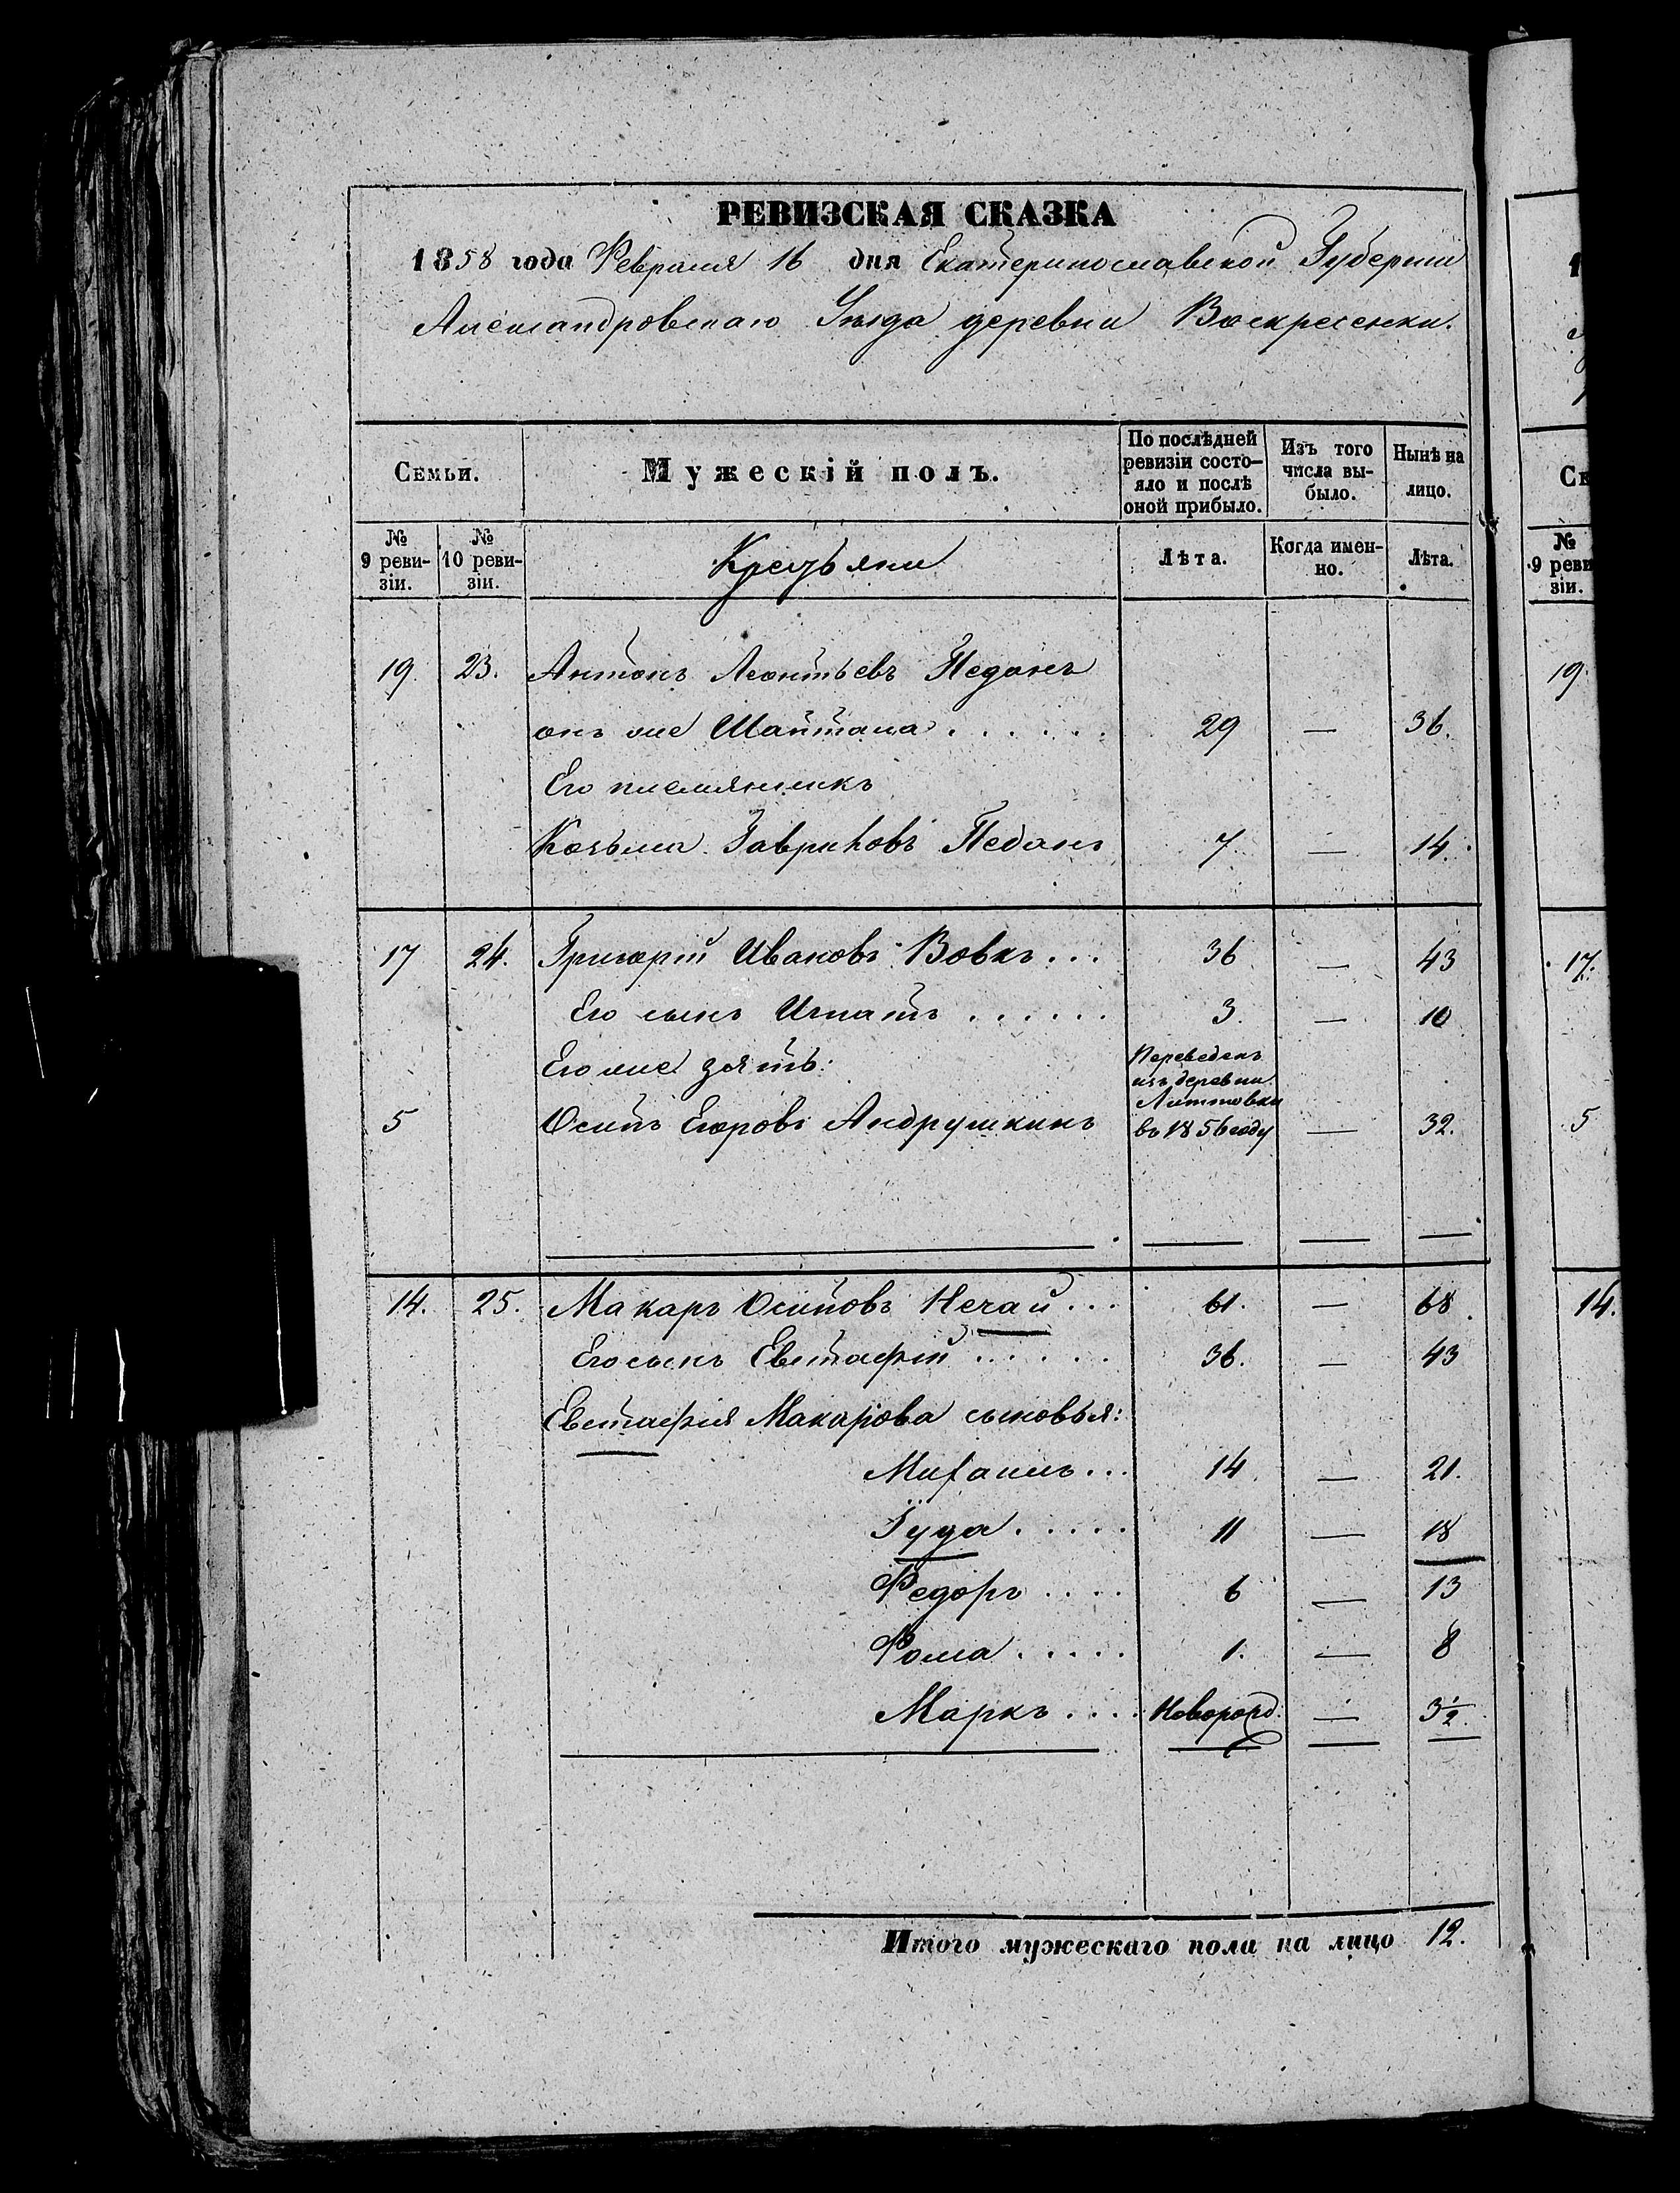 РЕВИЗСКАЯ СКАЗКА
1858 года Февраля 16 дня Екатеринославской Губерніи
Александровскаго Уѣзда деревни Воскресенки.
Семьи.
Мужескій полъ.
По послѣдней ревизіи состо-яло и послѣ оной прибыло.
Изъ того числа вы-было.
Нынѣ на лицо.
№ 9 реви-зіи.
№ 10 реви-зіи.
Крестьяне
Лѣта.
Когда имен-но.
Лѣта.
19. 23. Антонъ Леонтьевъ Педанъ
онъ же Шаптала . . . . . . 29 — 36.
Его племянникъ
Козьма Гавриловъ Педанъ 7 — 14.
17 24. Григорій Ивановъ Вовкъ . . . 36 — 43
Его сынъ Игнатъ . . . . . . 3. — 10
Его же зять:
Переведенъ
изъ деревни
5 Осипъ Егоровъ Андрушкинъ въ 1856 году — 32.
14. 25. Макаръ Осиповъ Нечай . . . 61. — 68.
Его сынъ Евстафій . . . . . . 36. — 43
Евстафія Макарова сыновья:
Михаилъ . . . 14. — 21.
Іуда . . . . . 11 — 18
Федоръ . . . . 6 — 13
Фома . . . . . 1. — 8
Маркъ . . . . Новорожд. — 3½.
Итого мужескаго пола на лицо 12.
№
9 реви
зіи.
19.
17.
5
14.